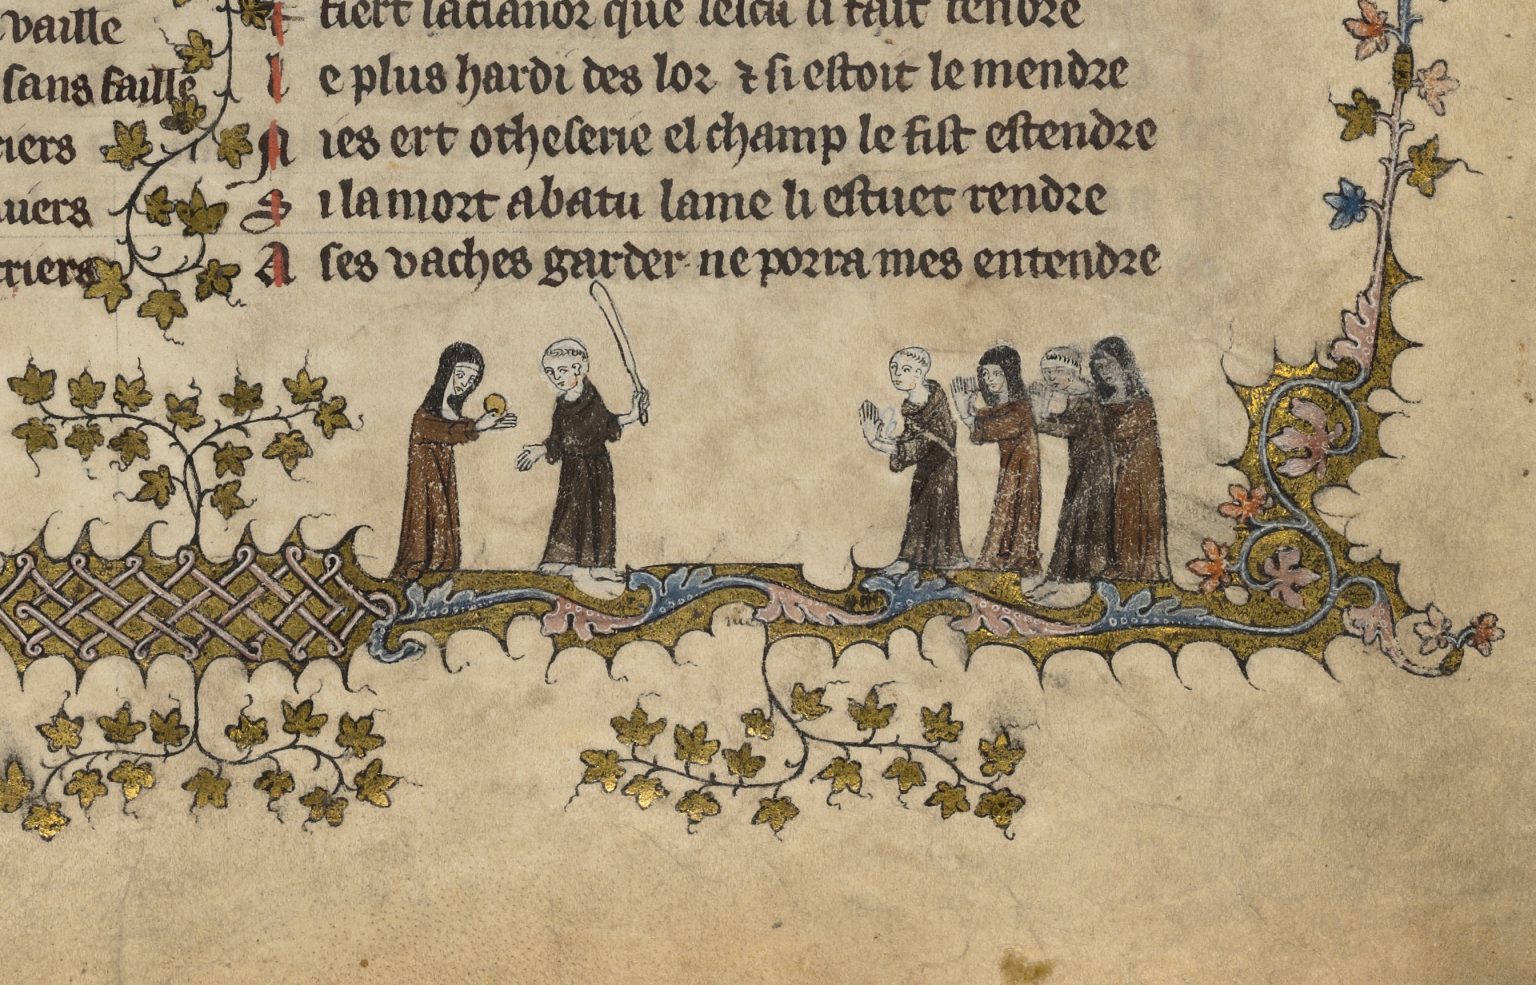 vaille
sans faille
tiers
uiers
triers
tiert latianor que lescu li fait fendre
l e plus hardi des lor ⁊ si estoit le mendre
N ies ert otheserie el champ le fist estendre
S i la mort abatu lame li estuet rendre
A ses vaches garder ne porra mes entendre